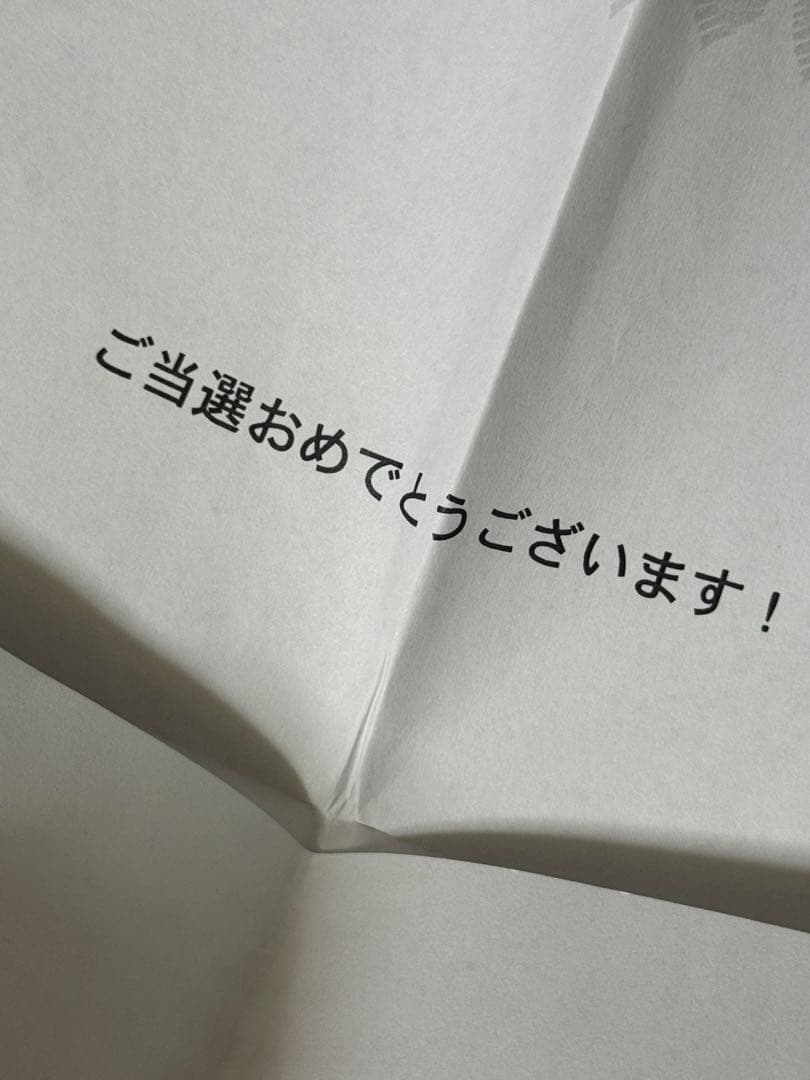 ご当選おめでとうございます！